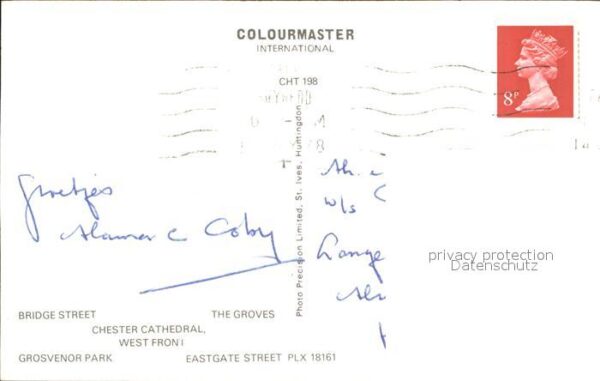 COLOURMASTER
INTERNATIONAL
CHT 198
8P
Photo Precision Limited, St. Ives, Huntingdon
Groetjes
Coby
W/s
Lange
privacy protection
Datenschutz
BRIDGE STREET THE GROVES
CHESTER CATHEDRAL,
WEST FRONT
GROSVENOR PARK EASTGATE STREET PLX 18161